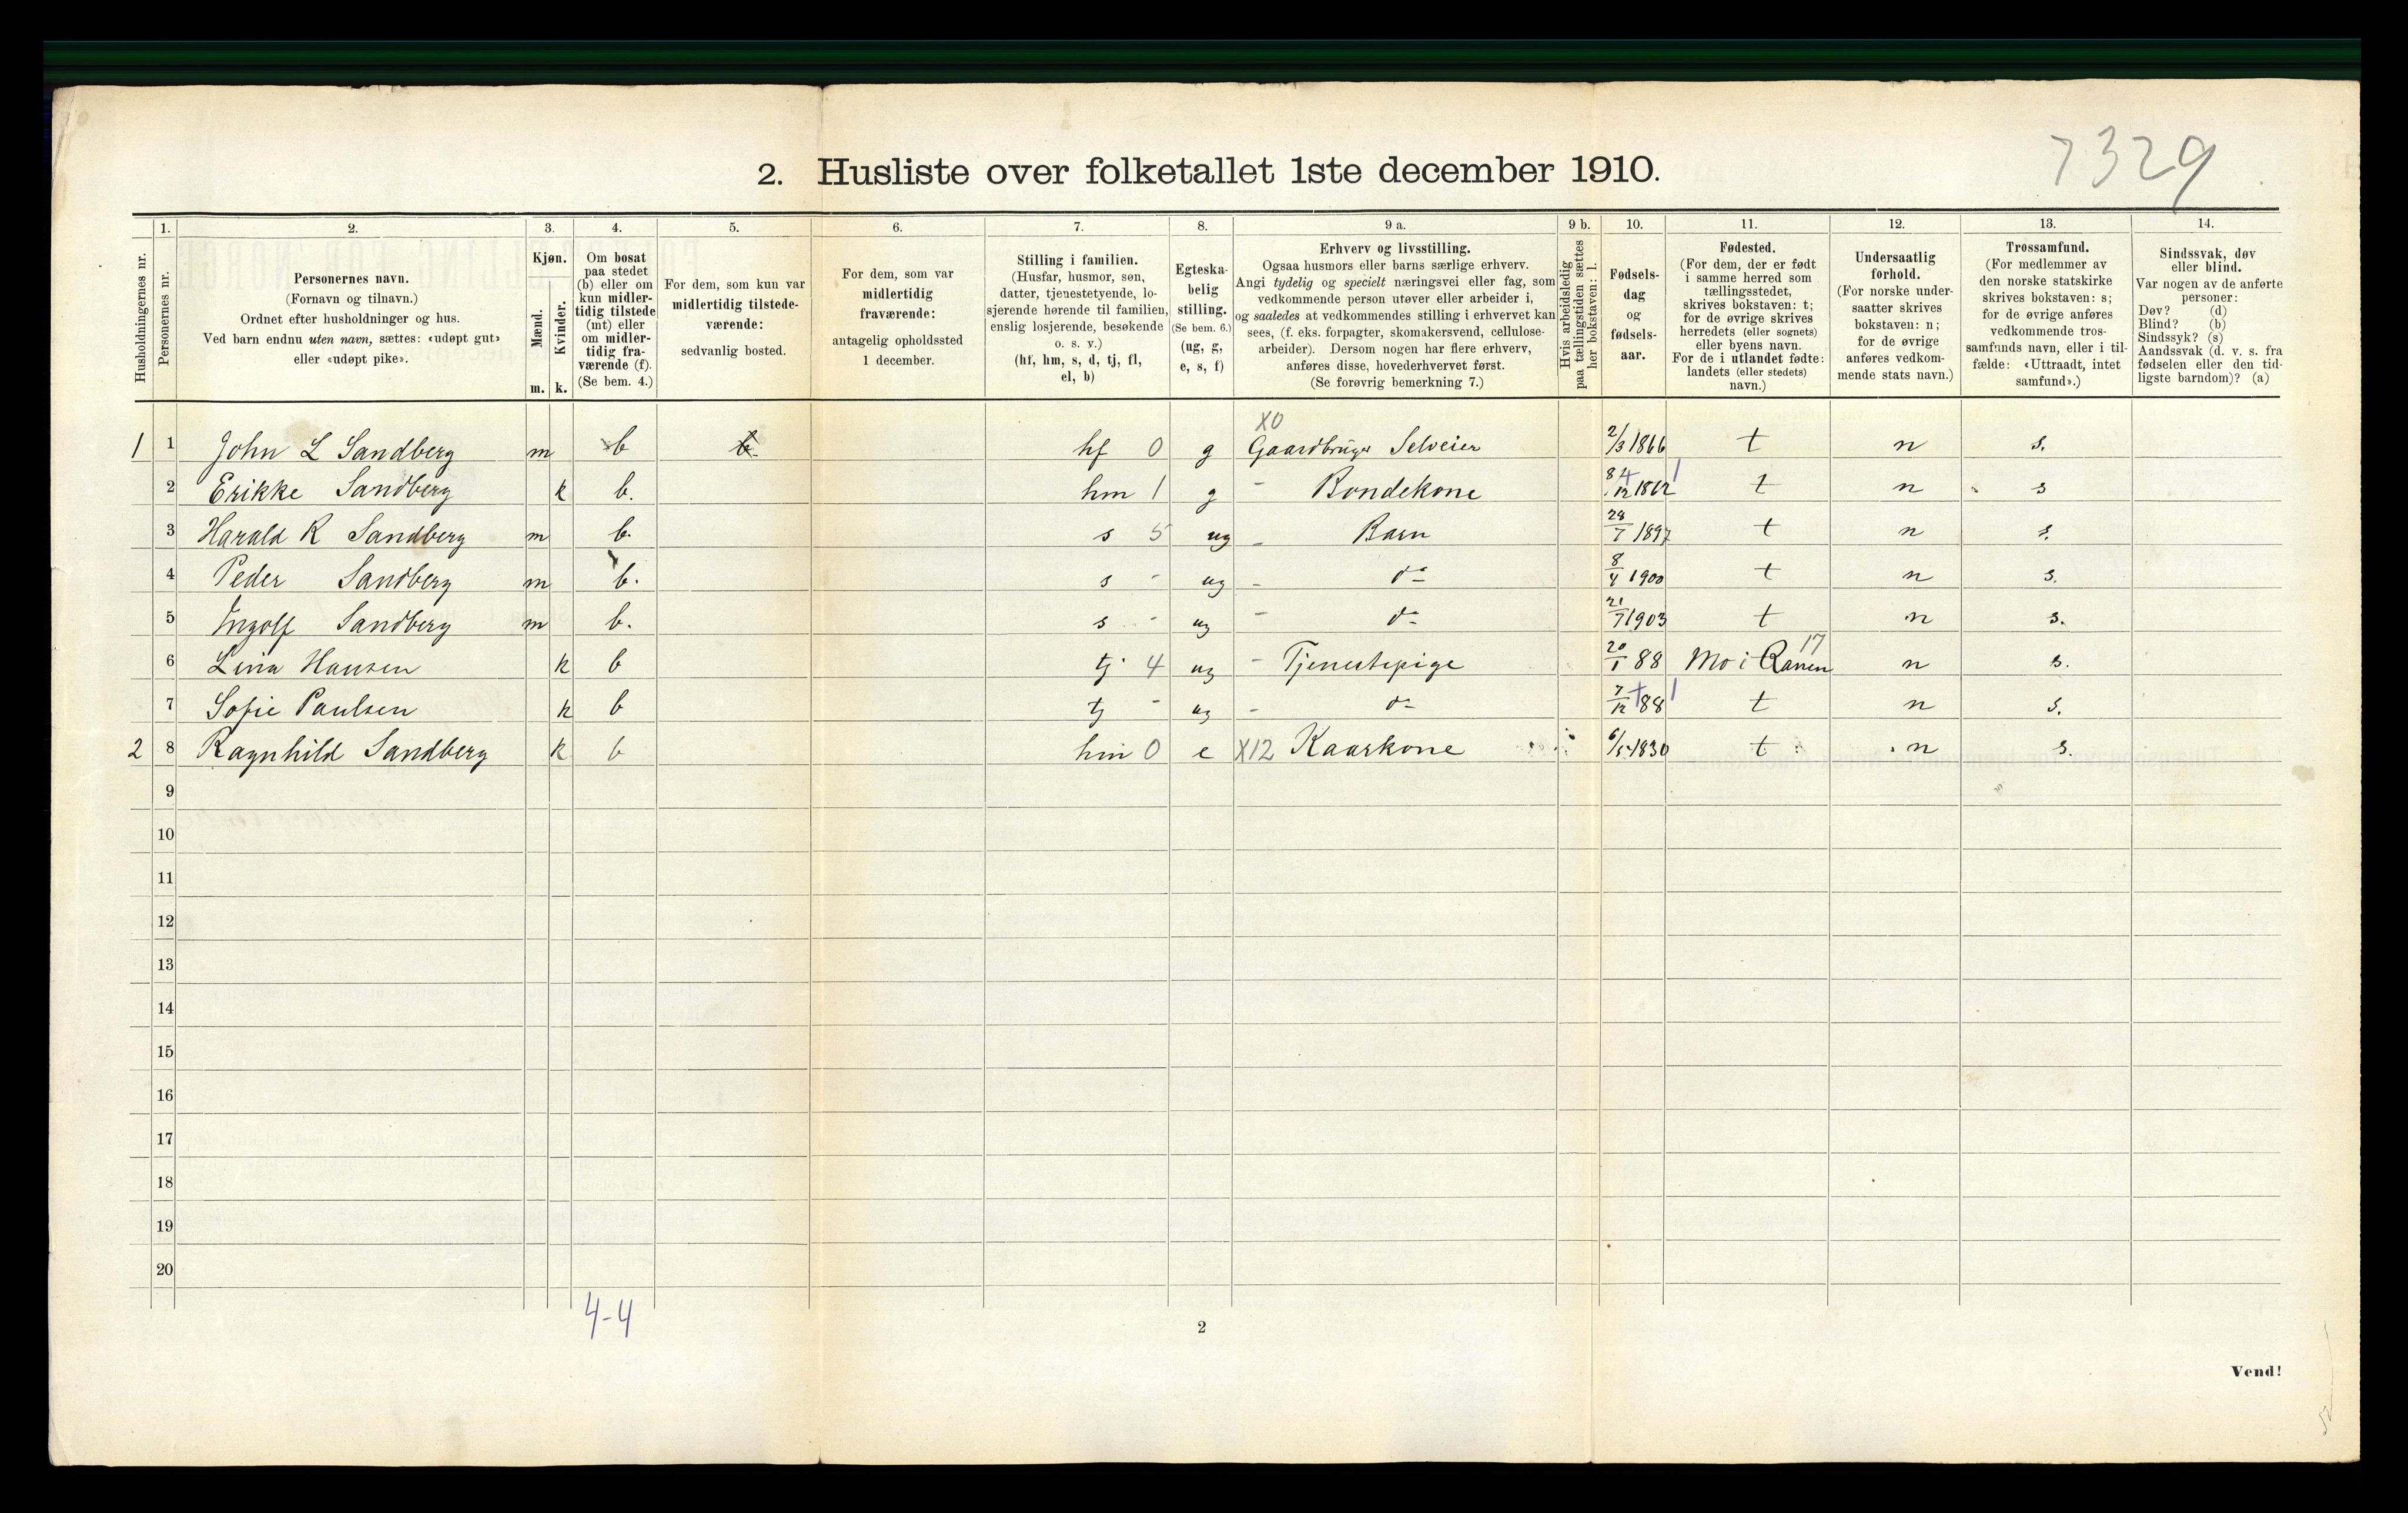 7329
2. Husliste over folketallet 1ste december 1910.
1. 2. 3. 4. 5. 6. 7. 8. 9 a. 9 b. 10. 11. 12. 13. 14.
Husholdningernes nr.
Personernes nr.
Personernes navn.
(Fornavn og tilnavn.)
Ordnet efter husholdninger og hus.
Ved barn endnu uten navn, sættes: «udøpt gut»
eller «udøpt pike».
Kjøn.
Mænd.
Kvinder.
m. k.
Om bosat
paa stedet
(b) eller om
kun midler-
tidig tilstede
(mt) eller
om midler-
tidig fra-
værende (f).
(Se bem. 4.)
For dem, som kun var
midlertidig tilstede-
værende:
sedvanlig bosted.
For dem, som var
midlertidig
fraværende:
antagelig opholdssted
1 december.
Stilling i familien.
(Husfar, husmor, søn,
datter, tjenestetyende, lo-
sjerende hørende til familien,
enslig losjerende, besøkende
o. s. v.)
(hf, hm, s, d, tj, fl,
el, b)
Egteska-
belig
stilling.
(Se bem. 6.)
(ug, g,
e, s, f)
Erhverv og livsstilling.
Ogsaa husmors eller barns særlige erhverv.
Angi tydelig og specielt næringsvei eller fag, som
vedkommende person utøver eller arbeider i,
og saaledes at vedkommendes stilling i erhvervet kan
sees, (f. eks. forpagter, skomakersvend, cellulose-
arbeider). Dersom nogen har flere erhverv,
anføres disse, hovederhvervet først.
(Se forøvrig bemerkning 7.)
Hvis arbeidsledig
paa tællingstiden sættes
her bokstaven: l.
Fødsels-
dag
og
fødsels-
aar.
Fødested.
(For dem, der er født
i samme herred som
tællingsstedet,
skrives bokstaven: t;
for de øvrige skrives
herredets (eller sognets)
eller byens navn.
For de i utlandet fødte:
landets (eller stedets)
navn.)
Undersaatlig
forhold.
(For norske under-
saatter skrives
bokstaven: n;
for de øvrige
anføres vedkom-
mende stats navn.)
Trossamfund.
(For medlemmer av
den norske statskirke
skrives bokstaven: s;
for de øvrige anføres
vedkommende tros-
samfunds navn, eller i til-
fælde: «Uttraadt, intet
samfund».)
Sindssvak, døv
eller blind.
Var nogen av de anførte
personer:
Døv? (d)
Blind? (b)
Sindssyk? (s)
Aandssvak (d. v. s. fra
fødselen eller den tid-
ligste barndom)? (a)
X0
1 1 John L Sandberg m b b hf 0 g Gaardbruger Selveier 2/3 1866 t n s.
2 Erikke Sandberg k b. hm 1 g - Bondekone 8/12 1862 t n s
3 Harald R Sandberg m b. s 5 ug - Barn 28/7 1897 t n s.
4 Peder Sandberg m b. s - ug - do 8/4 1900 t n s.
5 Ingolf Sandberg m b. s - ug - do 21/7 1903 t n s.
6 Lina Hansen k b tj 4 ug - Tjenestepige 20/1 88 Mo i Ranen 17 n s.
7 Sofie Paulsen k b tj - ug - do 7/12 88 t 1 n s.
2 8 Ragnhild Sandberg k b hm 0 e X12 Kaarkone 6/5 1830 t n s.
9
10
11
12
13
14
15
16
17
18
19
20
4-4
2
Vend!